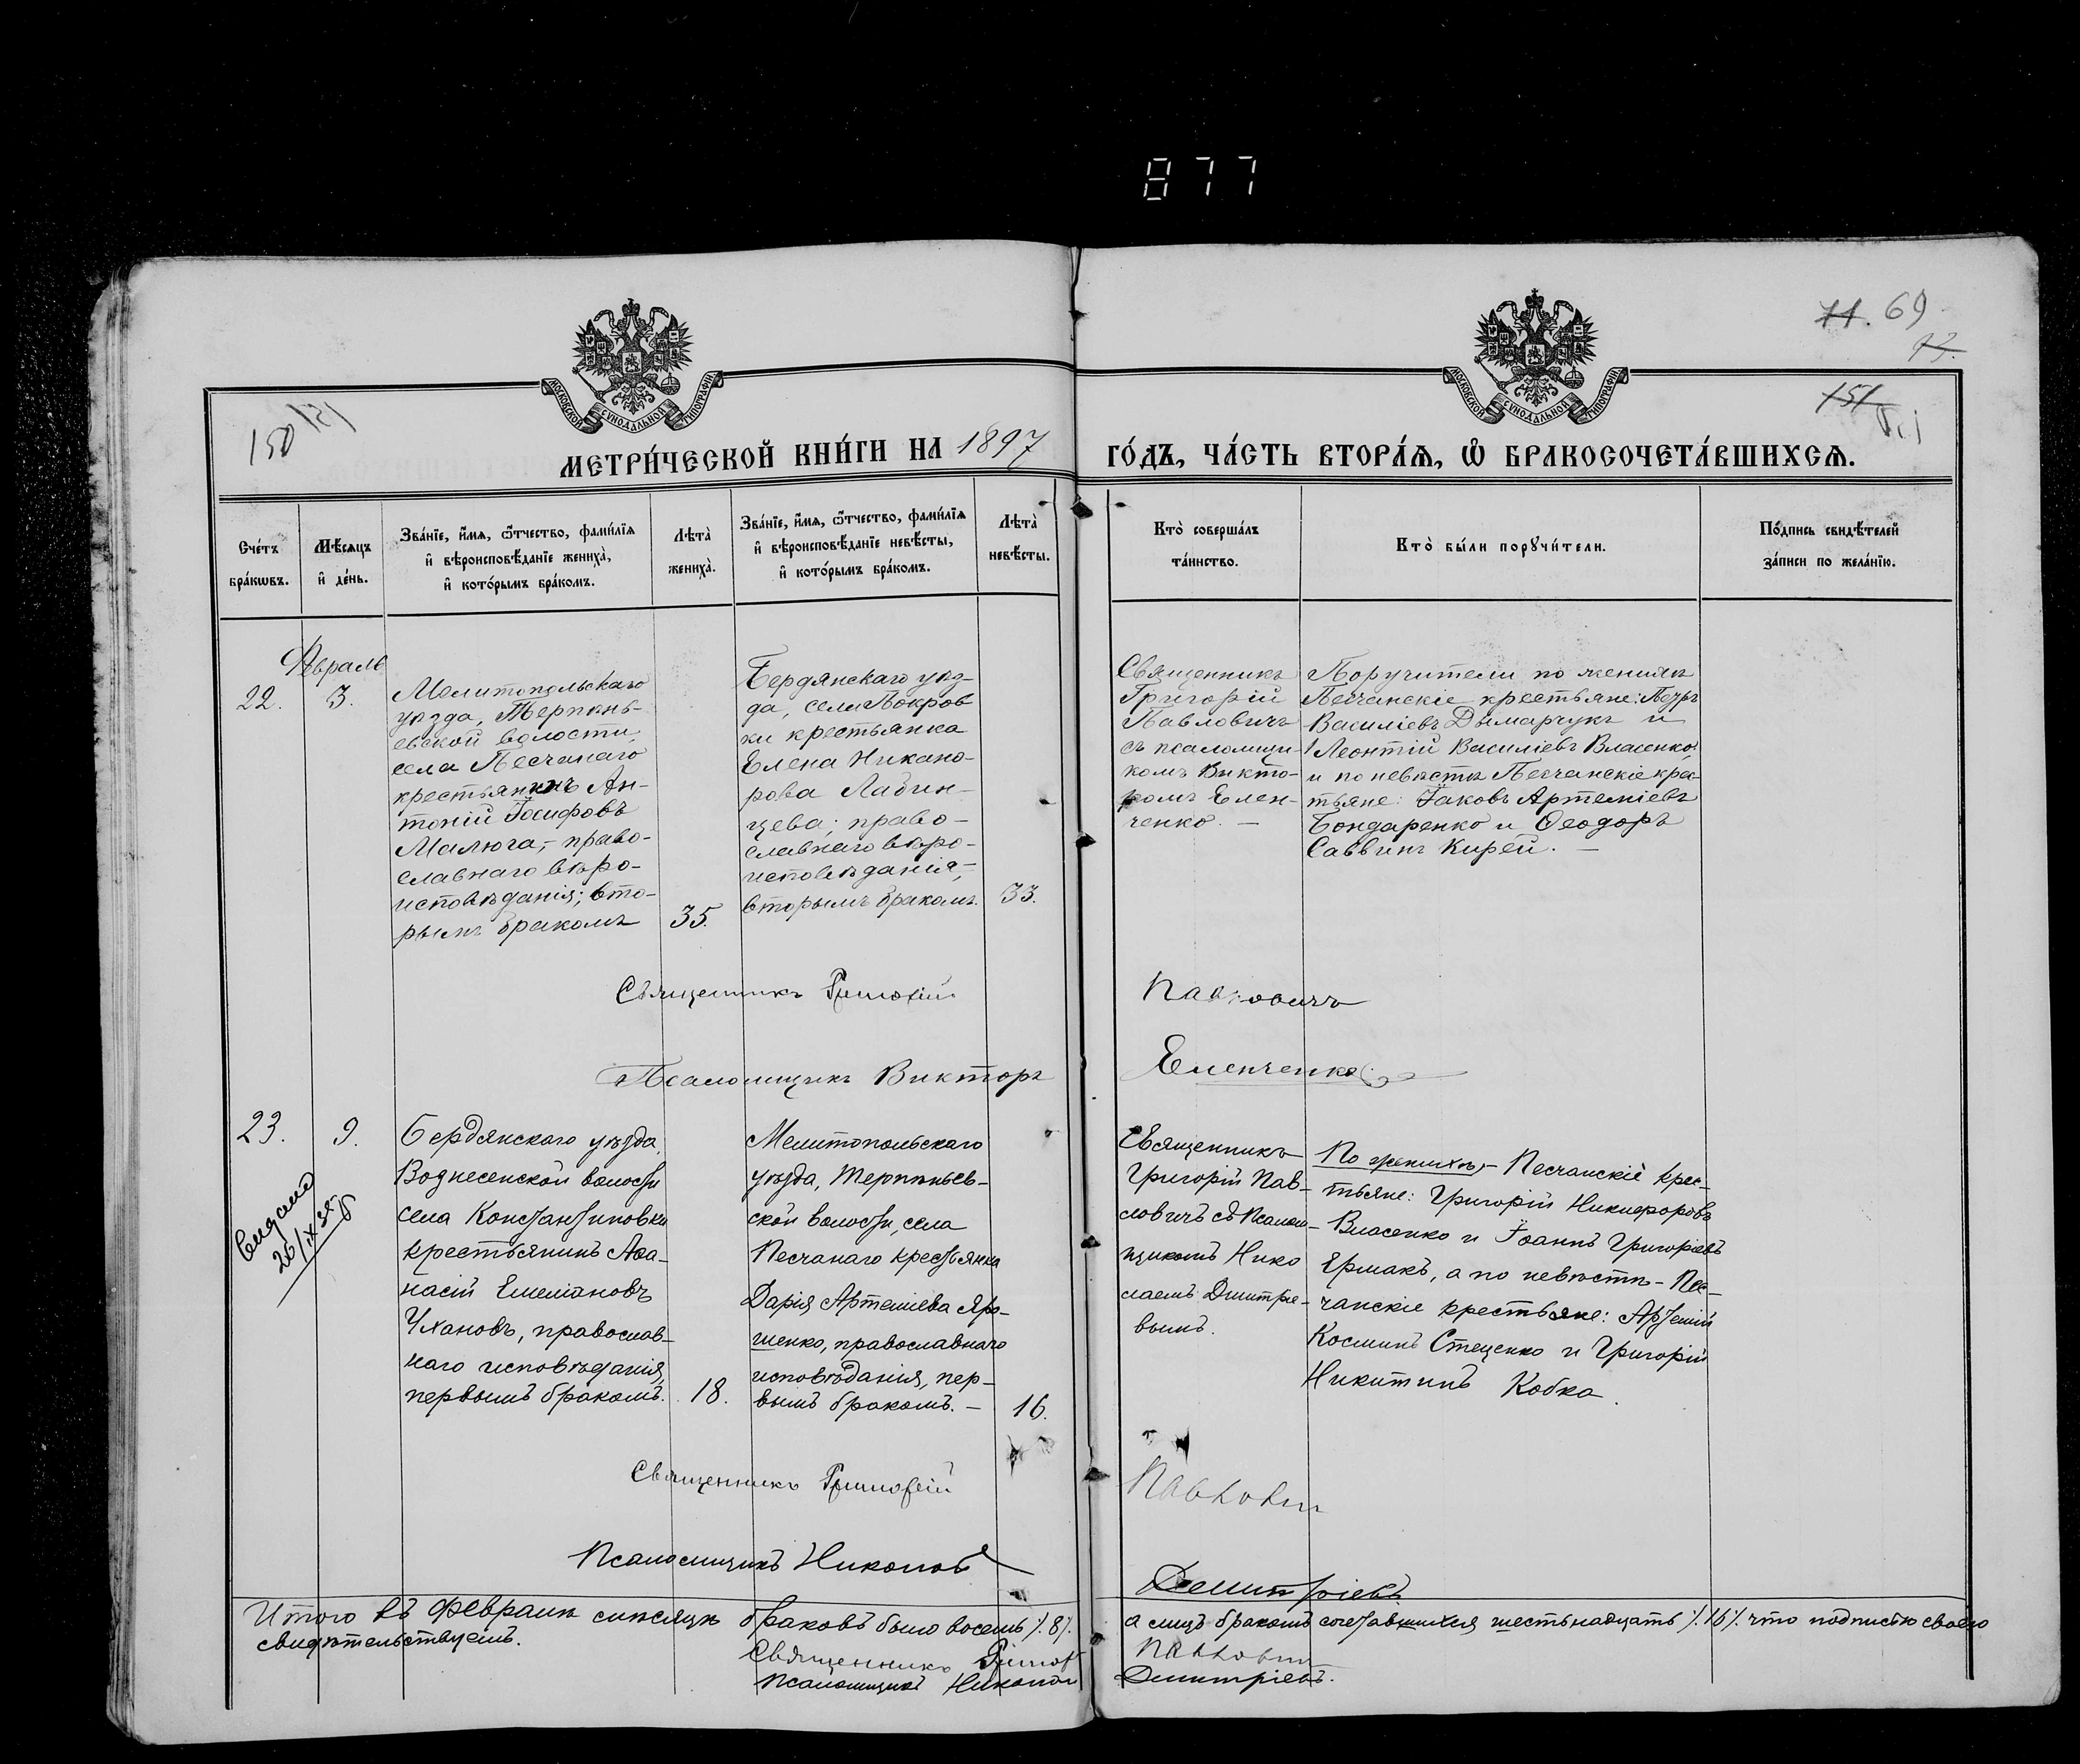 877
71. 69
73.
МОСКОВСКОЙ СѴНОДАЛЬНОЙ ТИПОГРАФІИ
МОСКОВСКОЙ СѴНОДАЛЬНОЙ ТИПОГРАФІИ
150 151
151
МЕТРИ́ЧЕСКОЙ КНИ́ГИ НА 1897 ГО́ДЪ, ЧА́СТЬ ВТОРА́Ѧ, Ѡ҆ БРАКОСОЧЕТА́ВШИХСѦ.
Сче́тъ
бра́кѡвъ.
Мѣ́сѧцъ
и҆ де́нь.
Зва́нїе, и҆́мѧ, ѻ҆́тчество, фами́лїѧ
и҆ вѣроисповѣ́данїе жениха̀,
и҆ кото́рымъ бра́комъ.
Лѣта̀
жениха̀.
Зва́нїе, и҆́мѧ, ѻ҆́тчество, фами́лїѧ
и҆ вѣроисповѣ́данїе невѣ́сты,
и҆ кото́рымъ бра́комъ.
Лѣта̀
невѣ́сты.
Кто̀ соверша́лъ
та́инство.
Кто̀ бы́ли порꙋчи́тели.
По́дпись свидѣ́телей
за́писи по жела́нїю.
Февраль
22.
3.
Мелитопольскаго
уѣзда, Терпѣнь-
евской волости,
села Песчанаго
крестьянинъ Ан-
тоній Іосифовъ
Малюга,- право-
славнаго вѣро-
исповѣданія; вто-
рымъ бракомъ
35.
Бердянскаго уѣз-
да, села Покров
ки крестьянка
Елена Никано-
рова Лабин-
цева; право-
славнаго вѣро-
исповѣданія,-
вторымъ бракомъ.
33.
Священникъ
Григорій
Павловичъ
съ псаломщи-
комъ Викто-
ромъ Елен-
ченко. —
Поручители по женихѣ
Песчанскіе крестьяне: Петръ
Василіевъ Дымарчукъ и
Леонтій Василіевъ Власенко,
и по невѣстѣ Песчанскіе крес-
тьяне: Іаковъ Артеміевъ
Бондаренко и Ѳеодоръ
Саввинъ Кирей. —
Священникъ Григорій Павловичъ
Псаломщикъ Викторъ Еленченко
23.
9.
Выдано
26/IX 39
Бердянскаго уѣзда,
Вознесенской волости
села Константиновки
крестьянинъ Аѳа-
насій Емеліановъ
Ухановъ, православ-
наго исповѣданія,
первымъ бракомъ.
18.
Мелитопольскаго
уѣзда, Терпѣньев-
ской волости, села
Песчанаго крестьянка
Дарія Артеміева Яро-
шенко, православнаго
исповѣданія, пер-
вымъ бракомъ. —
16.
Священникъ
Григорій Пав-
ловичъ съ Псалом-
щикомъ Нико
лаемъ Дмитріе-
вымъ.
По женихѣ,- Песчанскіе крес-
тьяне: Григорій Никифоровъ
Власенко и Іоаннъ Григоріевъ
Ермакъ, а по невѣстѣ - Пес-
чанскіе крестьяне: Артемій
Косминъ Стеценко и Григорій
Никитинъ Кобка.
Священникъ Григорій Павловичъ
Псаломщикъ Николай Дмитріевъ
Итого въ Февралѣ мѣсяцѣ браковъ было восемь /.8/. а лицъ бракомъ сочетавшихся шестьнадцать /.16/. что подписью своею
свидѣтельствуемъ.
Священникъ Григорій Павловичъ
Псаломщикъ Николай Дмитріевъ.